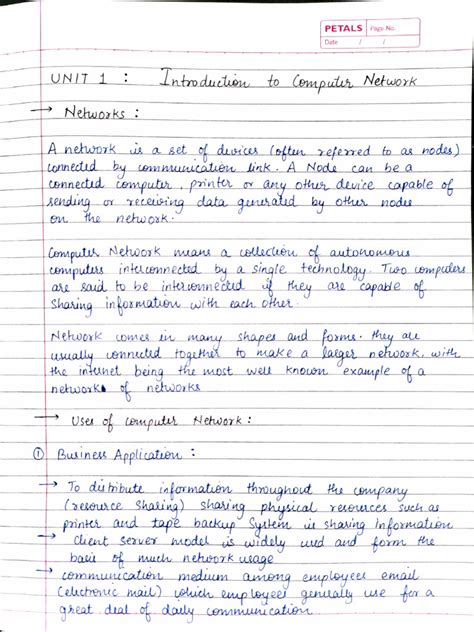 PETALS Page No.
Date / /
UNIT 1 : Introduction to Computer Network
→ Networks :
A network is a set of devices (often referred to as nodes)
connected by communication link. A Node can be a
connected computer, printer or any other device capable of
sending or receiving data generated by other nodes
on the network.
Computer Network means a collection of autonomous
computers interconnected by a single technology. Two computers
are said to be interconnected if they are capable of
sharing information with each other.
Network comes in many shapes and forms. they are
usually connected together to make a larger network, with
the internet being the most well known example of a
network of networks
→ Uses of computer Network :
① Business Application :
→ To distribute information throughout the company
(resource sharing) sharing physical resources such as
printer and tape backup system is sharing information
→ client server model is widely used and form the
basis of much network usage
→ communication medium among employees email
(electronic mail) which employees generally use for a
great deal of daily communication